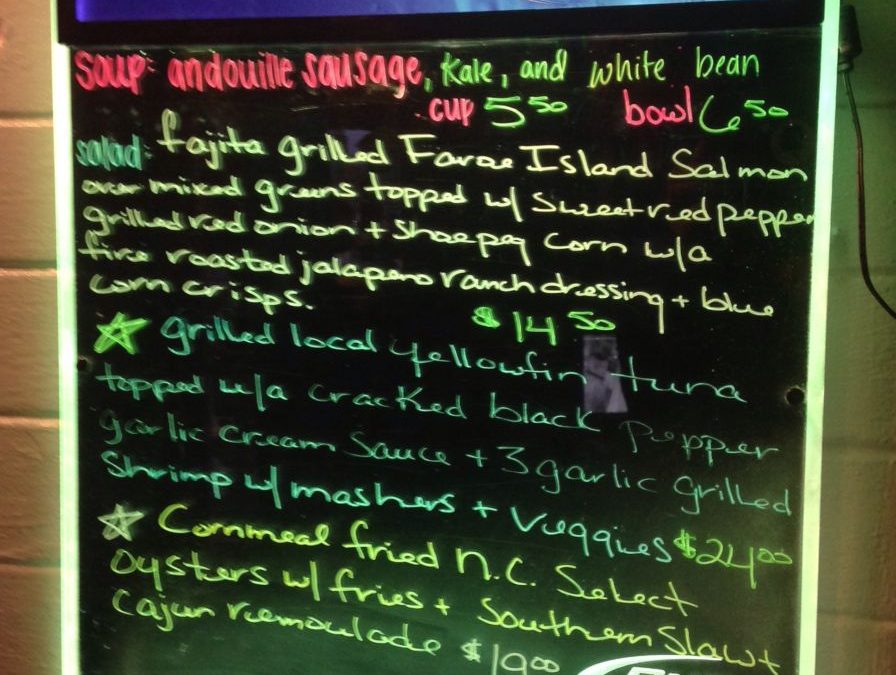 soup: andouille sausage, kale, and white bean
cup 5 50 bowl 6 50
salad: fajita grilled Faroe Island Salmon
over mixed greens topped w/ sweet red pepper
grilled red onion + shoepeg corn w/a
fire roasted jalapeno ranch dressing + blue
corn crisps.
$14 50
grilled local yellowfin tuna
topped w/a cracked black pepper
garlic cream sauce + 3 garlic grilled
shrimp w/ mashers + veggies $24 00
Cornmeal fried N.C. Select
Oysters w/ fries + Southern Slaw +
Cajun remoulade $19 00